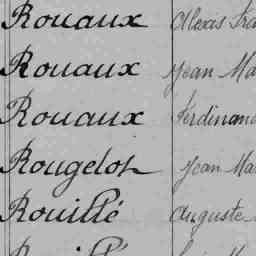 Rouaux Alexis Fra
Rouaux Jean Ma
Rouaux Ferdinand
Rougelot Jean Ma
Rouillé Auguste